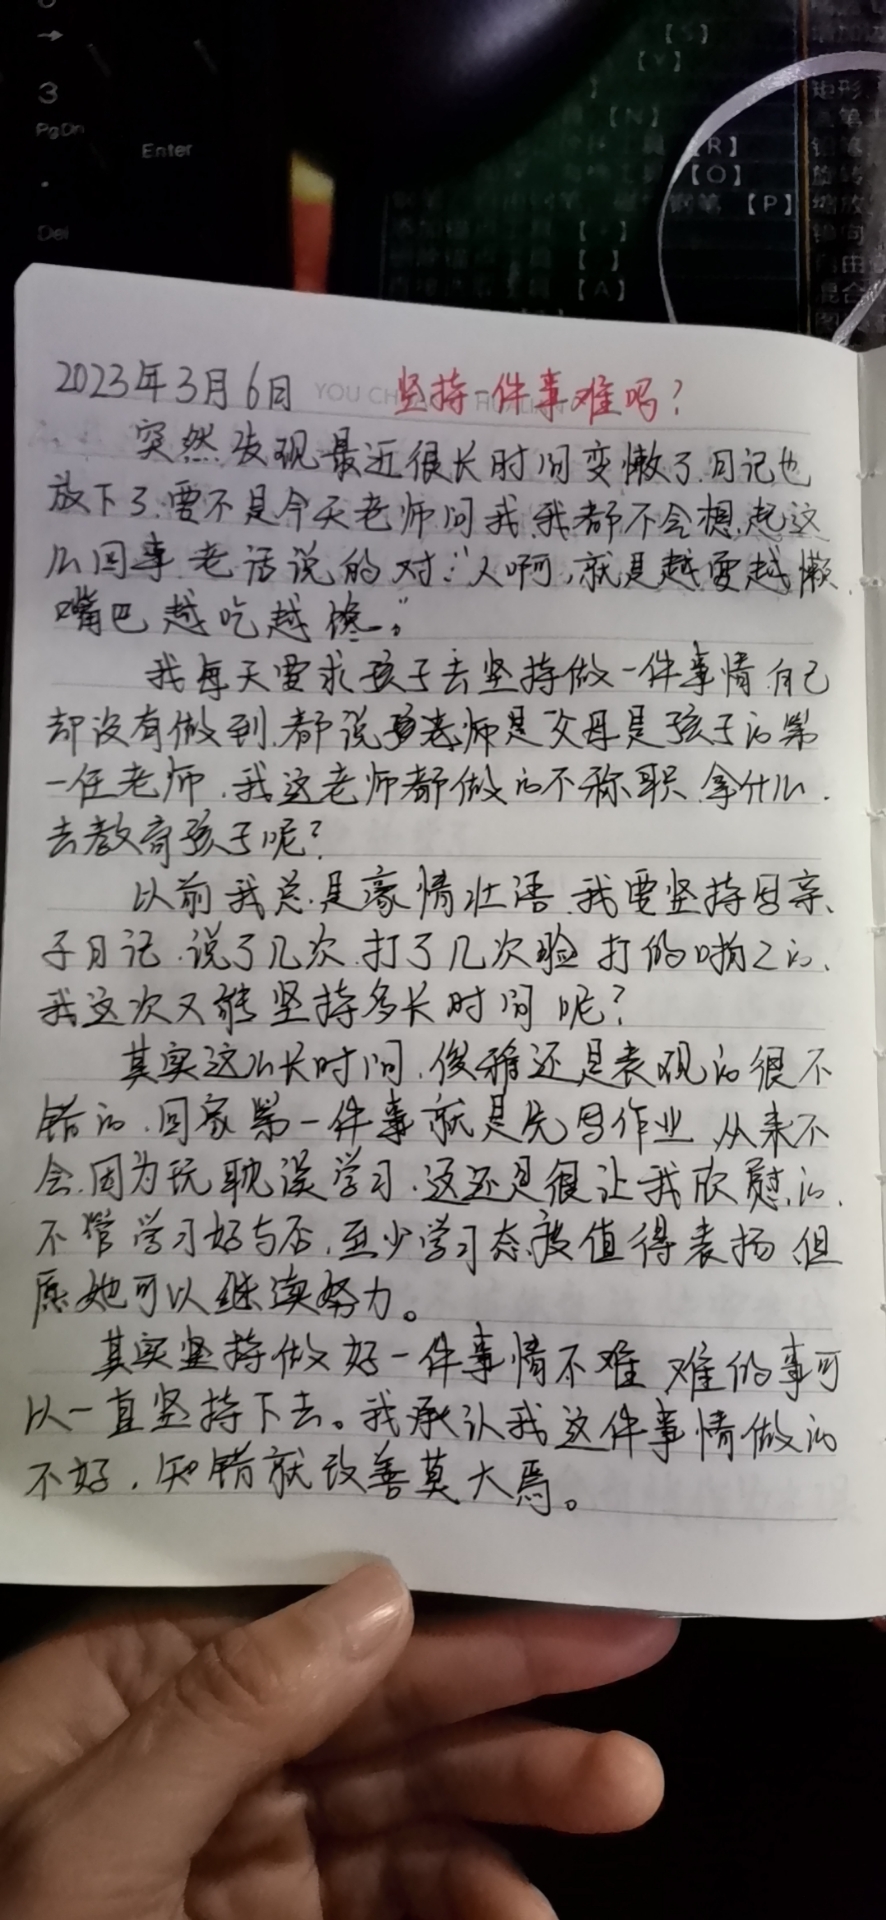 3
PgDn
Enter
.
Del
【S】
【Y】
【N】
【R】
【O】
钢笔 【P】
【A】
矩形
画笔
铅笔
旋转
缩放
镜向
自由
混合
2023年3月6日 坚持一件事难吗？
突然发现最近很长时间变懒了.日记也
放下了.要不是今天老师问我.我都不会想起这
么回事.老话说的对:"人啊,就是越耍越懒
嘴巴越吃越馋。"
我每天要求孩子去坚持做一件事情.自己
却没有做到.都说老师是父母是孩子的第
一任老师.我这老师都做的不称职.拿什么.
去教育孩子呢？
以前我总是豪情壮语.我要坚持写亲.
子日记.说了几次.打了几次脸 打的啪之的.
我这次又能坚持多长时间呢？
其实这么长时间.俊雅还是表现的很不
错的.回家第一件事就是先写作业 从来不
会因为玩耽误学习.这还是很让我欣慰的.
不管学习好与否,至少学习态度值得表扬 但
愿她可以继续努力。
其实坚持做好一件事情不难 难的事可
以一直坚持下去。我承认我这件事情做的
不好,知错就改善莫大焉。